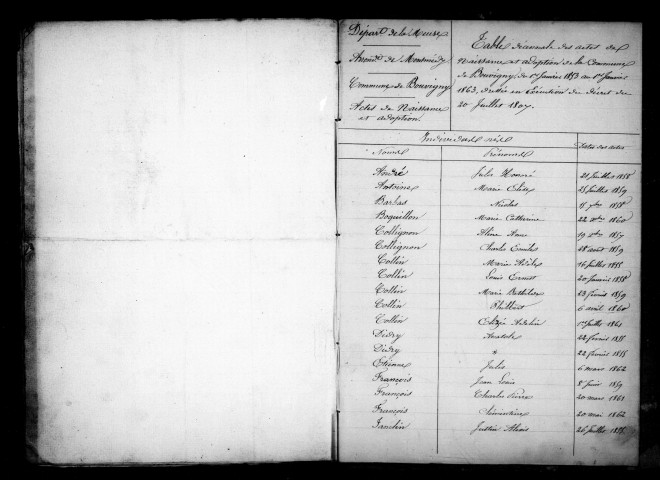 Départ. de la Meuse
Arrond. de Montmédy
Commune de Bouvigny
Actes de Naissance
et adoption.
Table décennale des actes de
Naissance et adoption de la Commune
de Bouvigny du 1er Janvier 1853 au 1er Janvier
1863, dressée en exécution du Décret du
20 Juillet 1807.
Individus nés
Noms Prénoms Dates des actes
André Jules Honoré 21 Juillet 1858
Antoine Marie 25 Juillet 1859
Barbas Nicolas 15 1858
Boquillon Marie Catherine 22 1860
Collignon Anne 19 1857
Collignon Charles Emile 18 août 1859
Collin Marie 16 Juillet 1855
Collin Louis Ernest 20 Janvier 1858
Collin Marie 23 février 1859
Collin Philbert 6 avril 1860
Collin 1861
Didry Anatole 22 février 1855
Didry 22 février 1855
Etienne Jules 6 mars 1862
François Jean Louis 8 Juin 1859
François Charles Pierre 20 mars 1861
François 20 mai 1862
Janclin Justin 26 Juillet